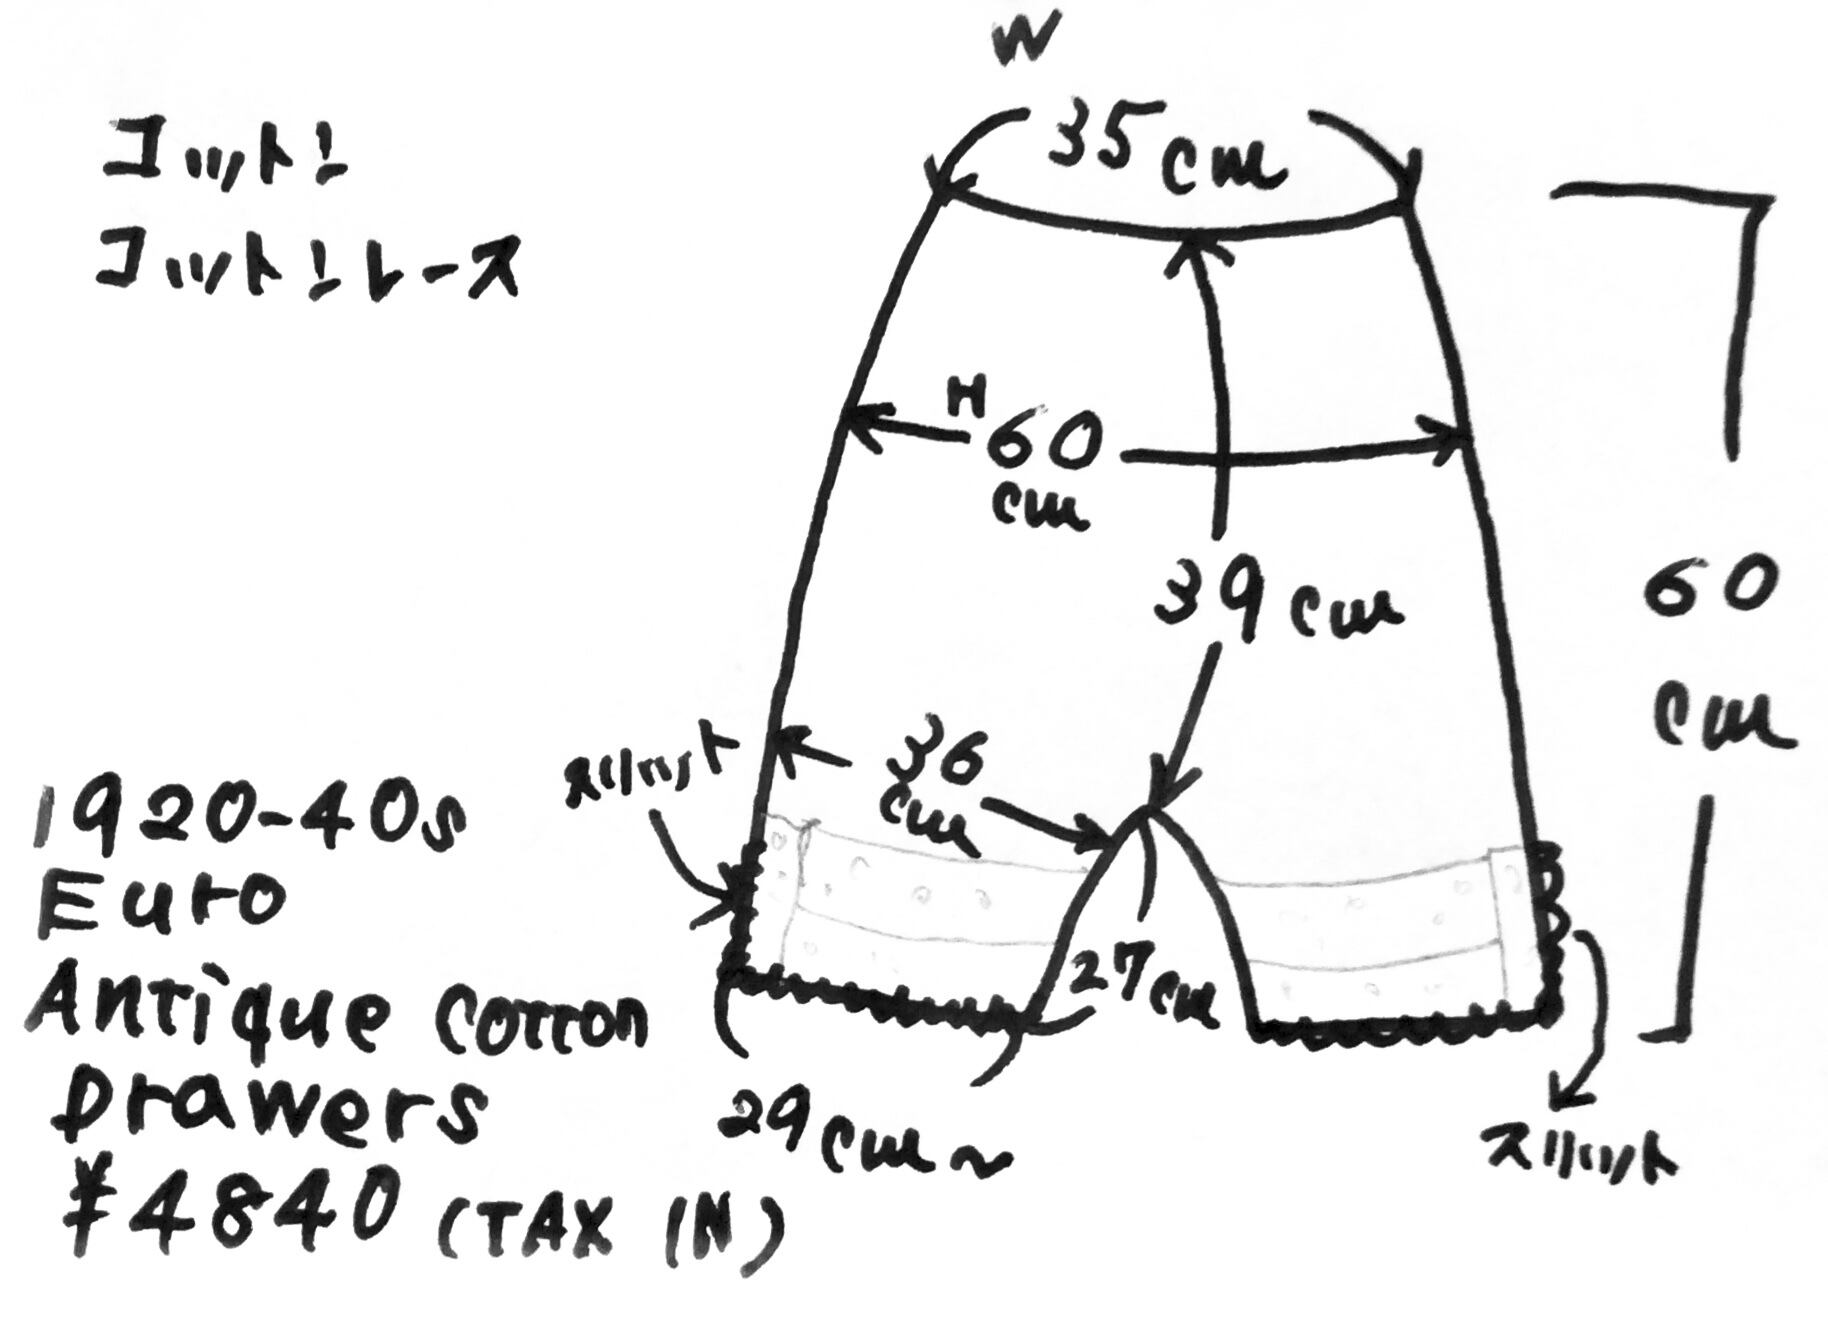 W
35cm
コットン
コットンレース
H
60
cm
39cm
60
cm
36
cm
スリット
1920-40s
Euro
Antique cotton
Drawers
¥4840 (TAX IN)
27cm
29cm~
スリット